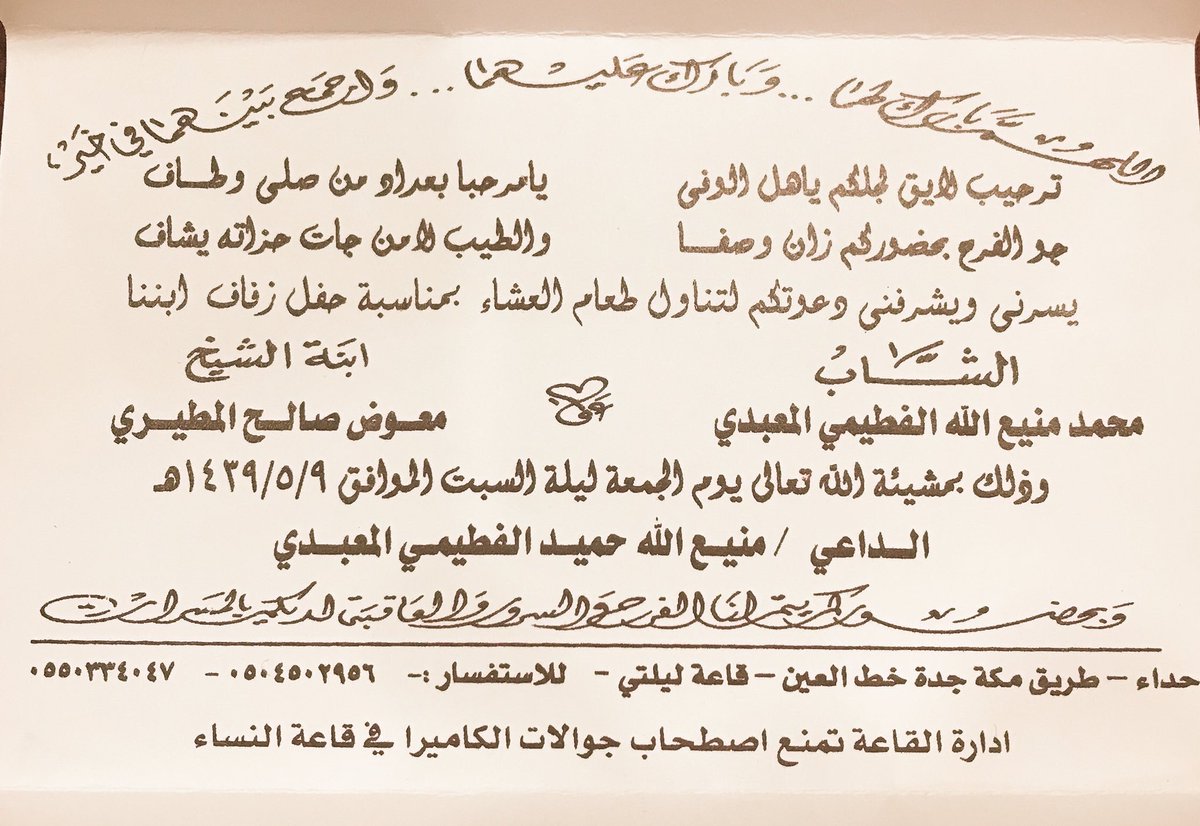 اللهم بارك لهما ... وبارك عليهما ... واجمع بينهما في خير
ترحيب لايق لجلكم ياهل الوفى يامرحبا بعداد من صلى وطاف
جو الفرح بحضوركم زان وصفا والطيب لامن جات حزاته يشاف
يسرني ويشرفني دعوتكم لتناول طعام العشاء بمناسبة حفل زفاف ابننا
الشاب ابنة الشيخ
محمد منيع الله الفطيمي المعبدي على معوض صالح المطيري
وذلك بمشيئة الله تعالى يوم الجمعة ليلة السبت الموافق ١٤٣٩/٥/٩هـ
الداعي / منيع الله حميد الفطيمي المعبدي
وبحضوركم يتم لنا الفرح والسرور والعاقبة لديكم بالمسرات
حداء - طريق مكة جدة خط العين - قاعة ليلتي - للاستفسار :- ٠٥٠٤٥٠٢٩٥٦ - ٠٥٥٠٣٣٤٠٤٧
ادارة القاعة تمنع اصطحاب جوالات الكاميرا في قاعة النساء